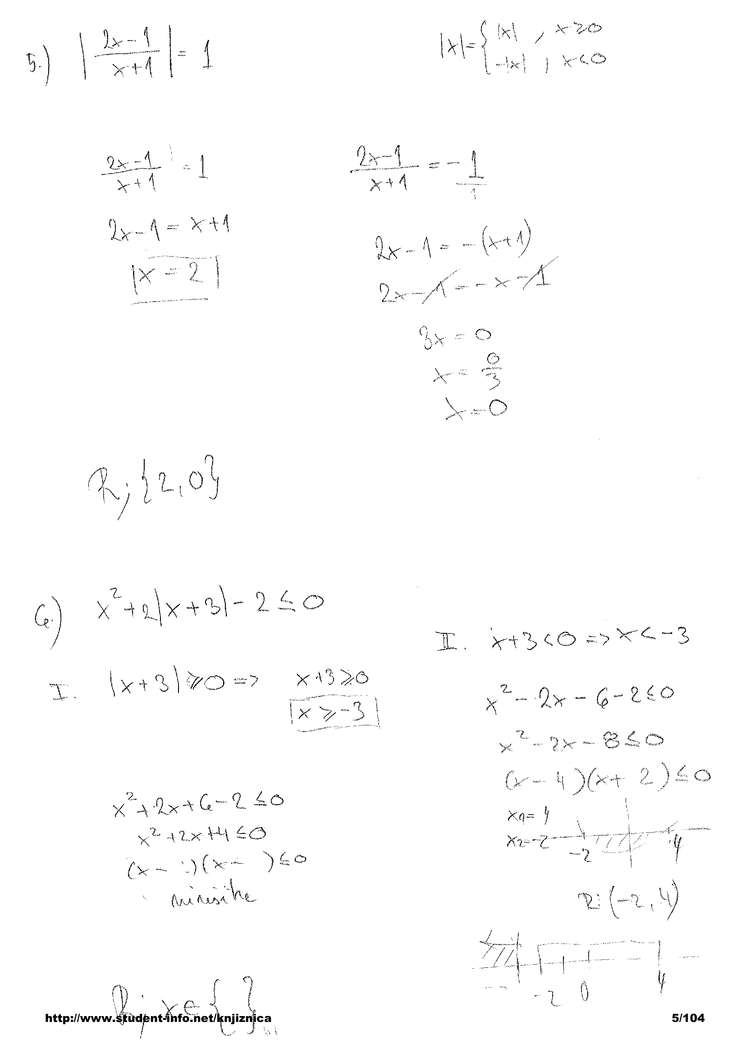 5.) |(2x-1)/(x+1)| = 1
|x| = { |x| , x≥0
-|x| , x<0
(2x-1)/(x+1) = 1
2x-1 = x+1
x = 2
(2x-1)/(x+1) = -1/1
2x-1 = -(x+1)
2x-1 = -x-1
3x = 0
x = 0/3
x = 0
R; {2,0}
6.) x²+2|x+3|-2 ≤ 0
I. |x+3| ≥ 0 => x+3 ≥ 0
x ≥ -3
x²+2x+6-2 ≤ 0
x²+2x+4 ≤ 0
(x- )(x- ) ≤ 0
R; x∈{ }
II. x+3<0 => x<-3
x²-2x-6-2 ≤ 0
x²-2x-8 ≤ 0
(x-4)(x+2) ≤ 0
x1 = 4
x2 = -2
-2 4
R: (-2,4)
-2 0 4
http://www.student-info.net/knjiznica 5/104